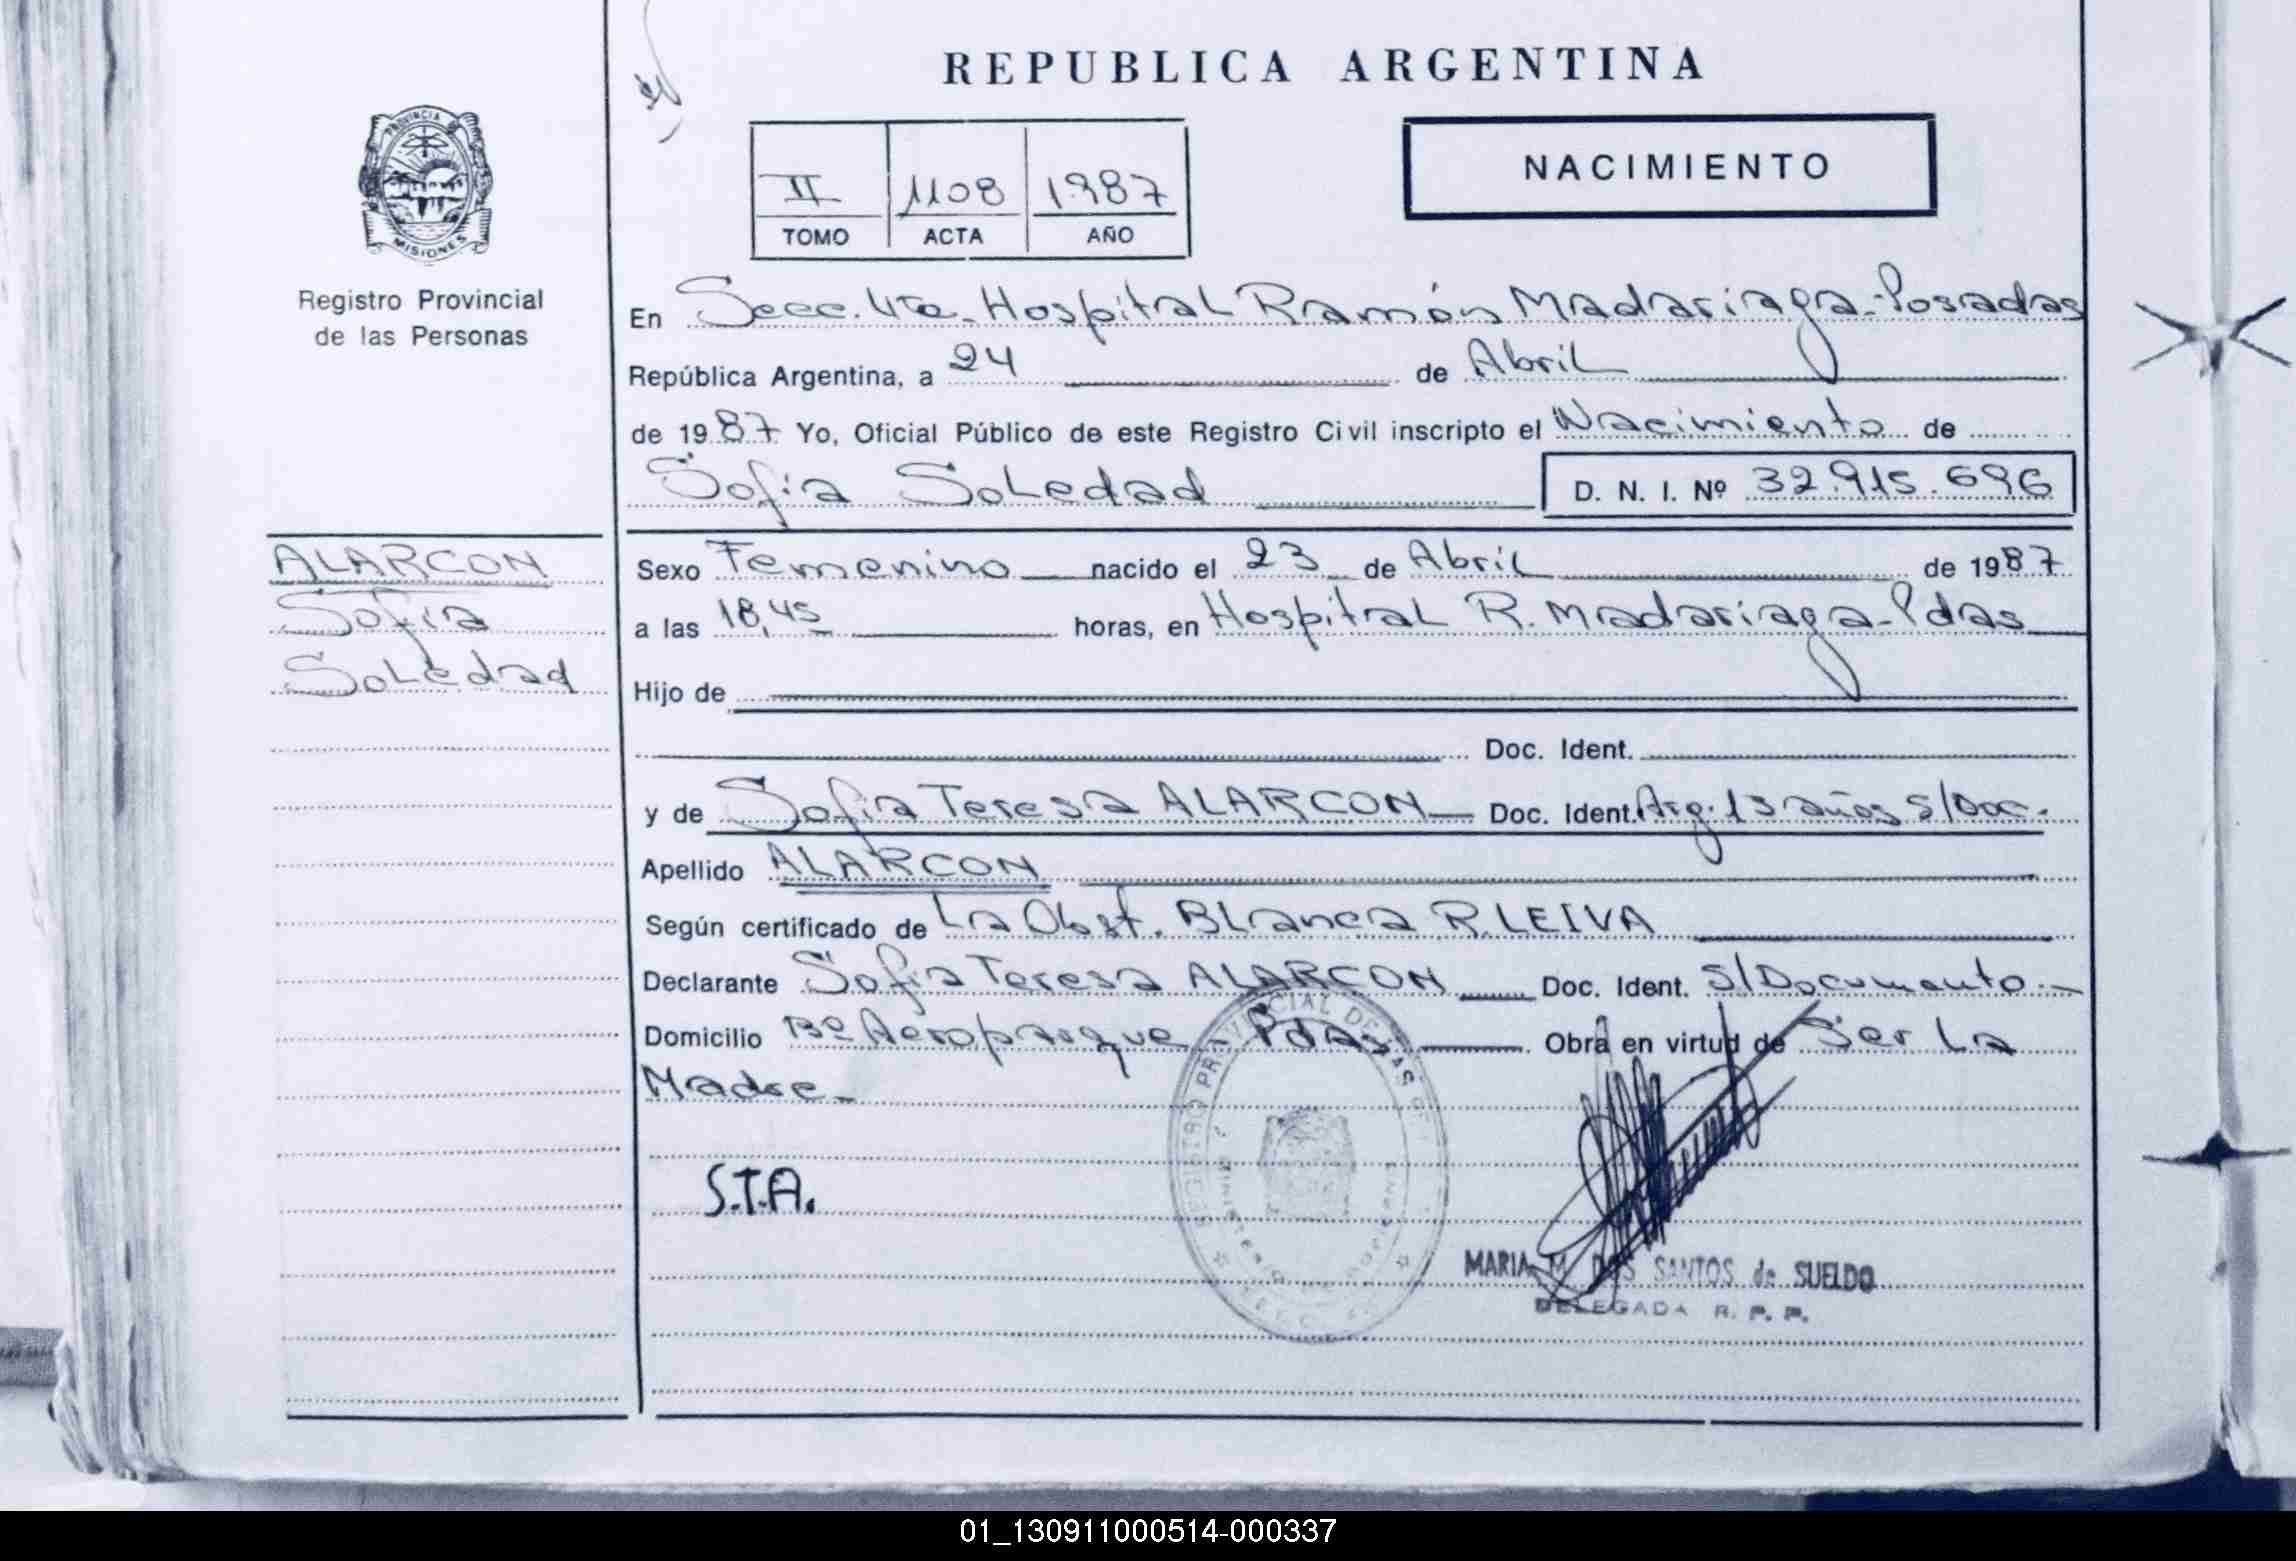 REPUBLICA ARGENTINA
PROVINCIA DE
MISIONES
Registro Provincial
de las Personas
II 1108 1987
TOMO ACTA AÑO
NACIMIENTO
En Secc. 4ta. Hospital Ramón Madariaga-Posadas
República Argentina, a 24 de Abril
de 1987 Yo, Oficial Público de este Registro Civil inscripto el Nacimiento de
Sofia Soledad D. N. I. Nº 32.915.696
ALARCON
Sofia
Soledad
Sexo Femenino nacido el 23 de Abril de 1987
a las 18,45 horas, en Hospital R. Madariaga-Pdas
Hijo de
Doc. Ident.
y de Sofia Teresa ALARCON Doc. Ident. Arg. 13 años S/Doc.
Apellido ALARCON
Según certificado de La Obst. Blanca R. LEIVA
Declarante Sofia Teresa ALARCON Doc. Ident. S/Documento.-
Domicilio Bº Aeroparque - Pdas Obra en virtud de Ser La
Madre-
REGISTRO PROVINCIAL DE LAS
S.T.A.
MARIA M. DOS SANTOS de SUELDO
DELEGADA R. P. P.
01_130911000514-000337